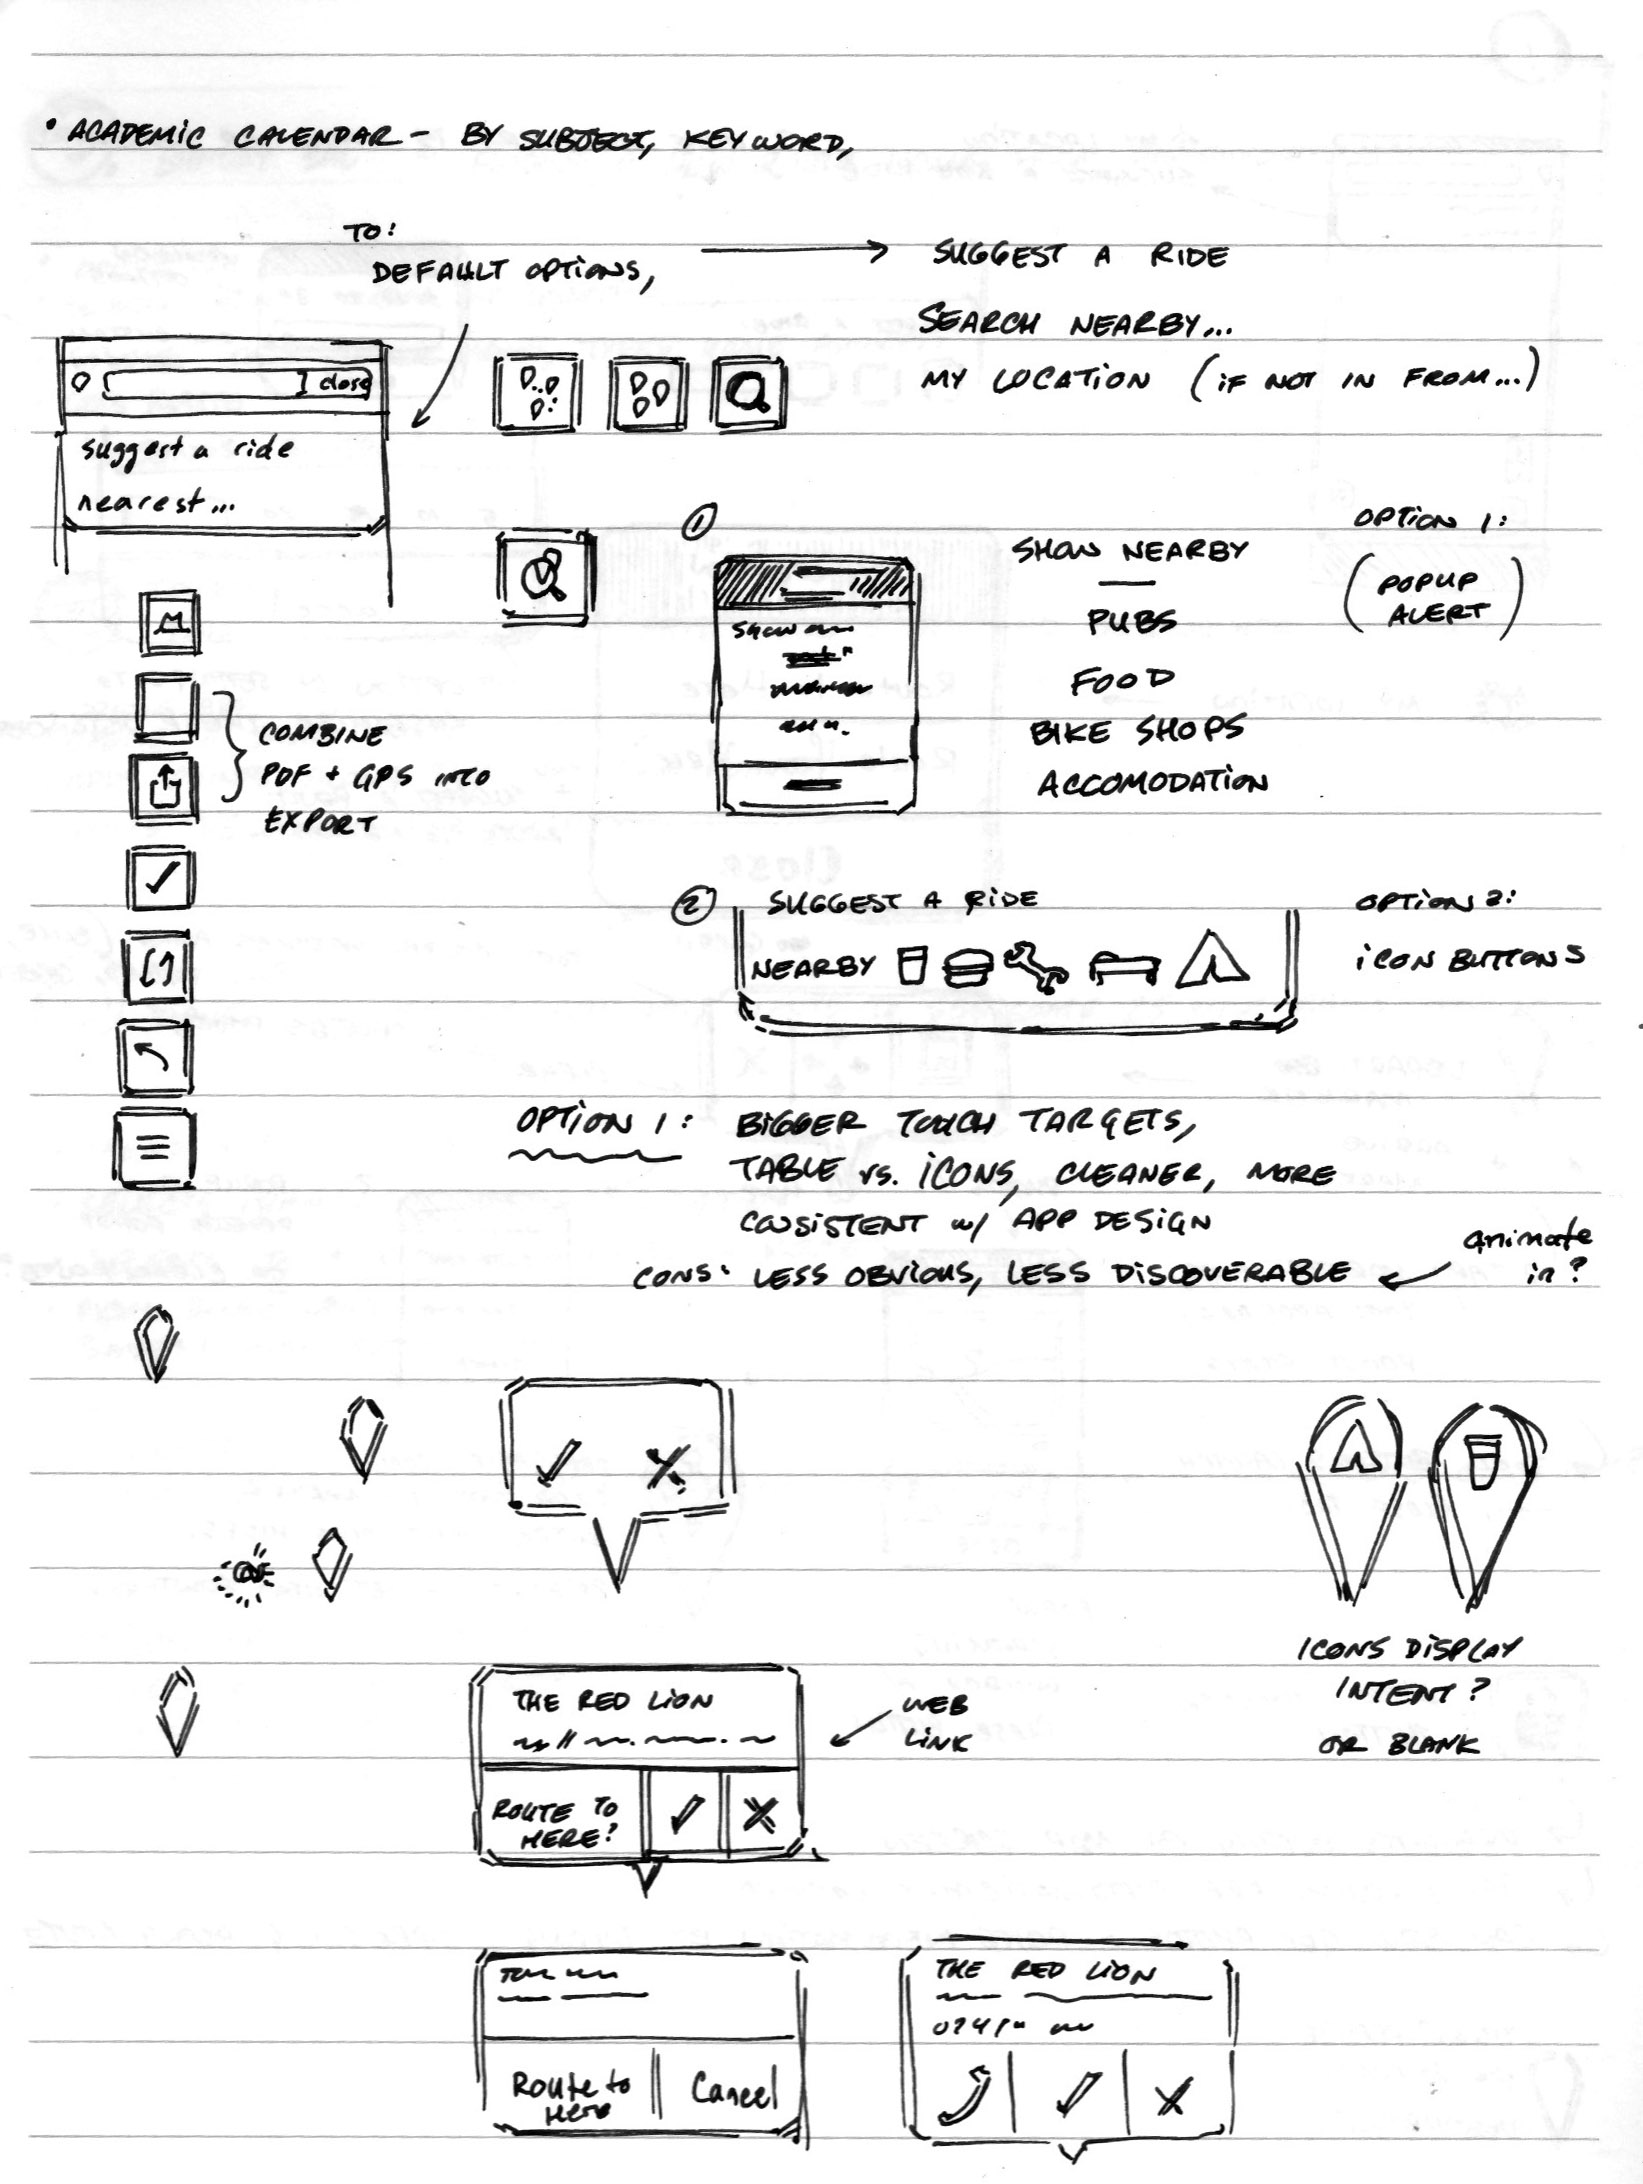 • ACADEMIC CALENDAR – BY SUBJECT, KEYWORD,
TO:
DEFAULT OPTIONS,
SUGGEST A RIDE
SEARCH NEARBY...
MY LOCATION (IF NOT IN FROM...)
close
suggest a ride
nearest...
COMBINE
PDF + GPS INTO
EXPORT
1
SHOW NEARBY
PUBS
FOOD
BIKE SHOPS
ACCOMODATION
OPTION 1:
(POPUP
ALERT)
2 SUGGEST A RIDE
NEARBY
OPTION 2:
ICON BUTTONS
OPTION 1: BIGGER TOUCH TARGETS,
TABLE vs. ICONS, CLEANER, MORE
CONSISTENT w/ APP DESIGN
CONS: LESS OBVIOUS, LESS DISCOVERABLE
animate
in?
ICONS DISPLAY
INTENT?
OR BLANK
THE RED LION
ROUTE TO
HERE?
WEB
LINK
Route to
Here
Cancel
THE RED LION